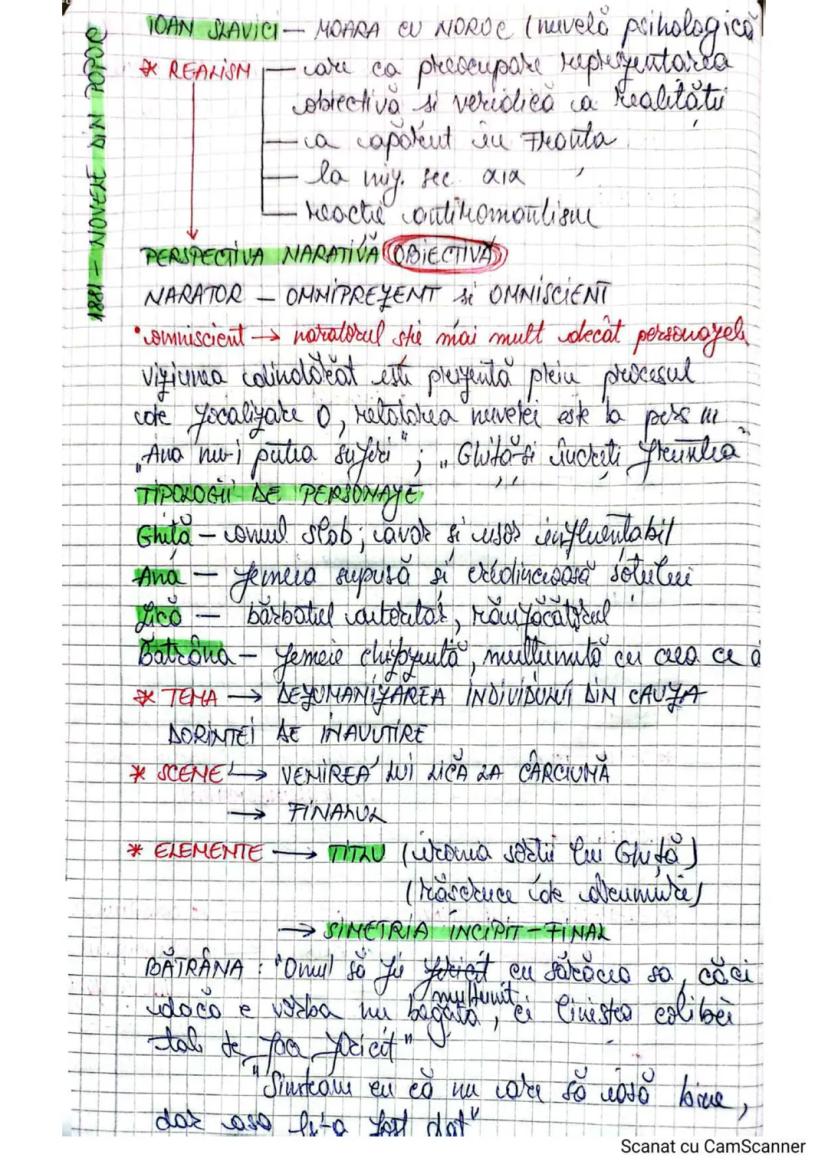 1881 - NUVELE DIN POPOR
IOAN SLAVICI - MOARA CU NOROC (nuvelă psihologică
* REALISM - are ca preocupare reprezentarea
obiectivă și veridică a realității
- a apărut în Franța
- la mij. sec XIX
- reacție antiromantism
PERSPECTIVA NARATIVĂ OBIECTIVĂ
NARATOR - OMNIPREZENT și OMNISCIENT
• omniscient → naratorul știe mai mult decât personajele
viziunea dindărăt este prezentă prin procesul
de focalizare 0, relatarea nuvelei este la pers III
"Ana nu-i putea suferi"; "Ghiță-și încreți fruntea"
TIPOLOGII DE PERSONAJE
Ghiță - omul slab; avar și ușor influențabil
Ana - femeia supusă și credincioasă soțului
Lică - bărbatul autoritar, răufăcătorul
Batrâna - femeie chibzuită, mulțumită cu ceea ce a
* TEMA → DEZUMANIZAREA INDIVIDULUI DIN CAUZA
DORINTEI DE INAVUTIRE
* SCENE → VENIREA LUI LICĂ LA CÂRCIUMĂ
→ FINALUL
* ELEMENTE → TITLU (ironia sorții lui Ghiță)
(răscruce de drumuri)
→ SIMETRIA INCIPIT - FINAL
BĂTRÂNA: "Omul să fie mulțumit cu sărăcia sa, căci
dacă e vorba nu bogăția, ci liniștea colibei
tale te face fericit"
"Simțeam eu că nu are să iasă bine,
dar așa le-a fost dat"
Scanat cu CamScanner